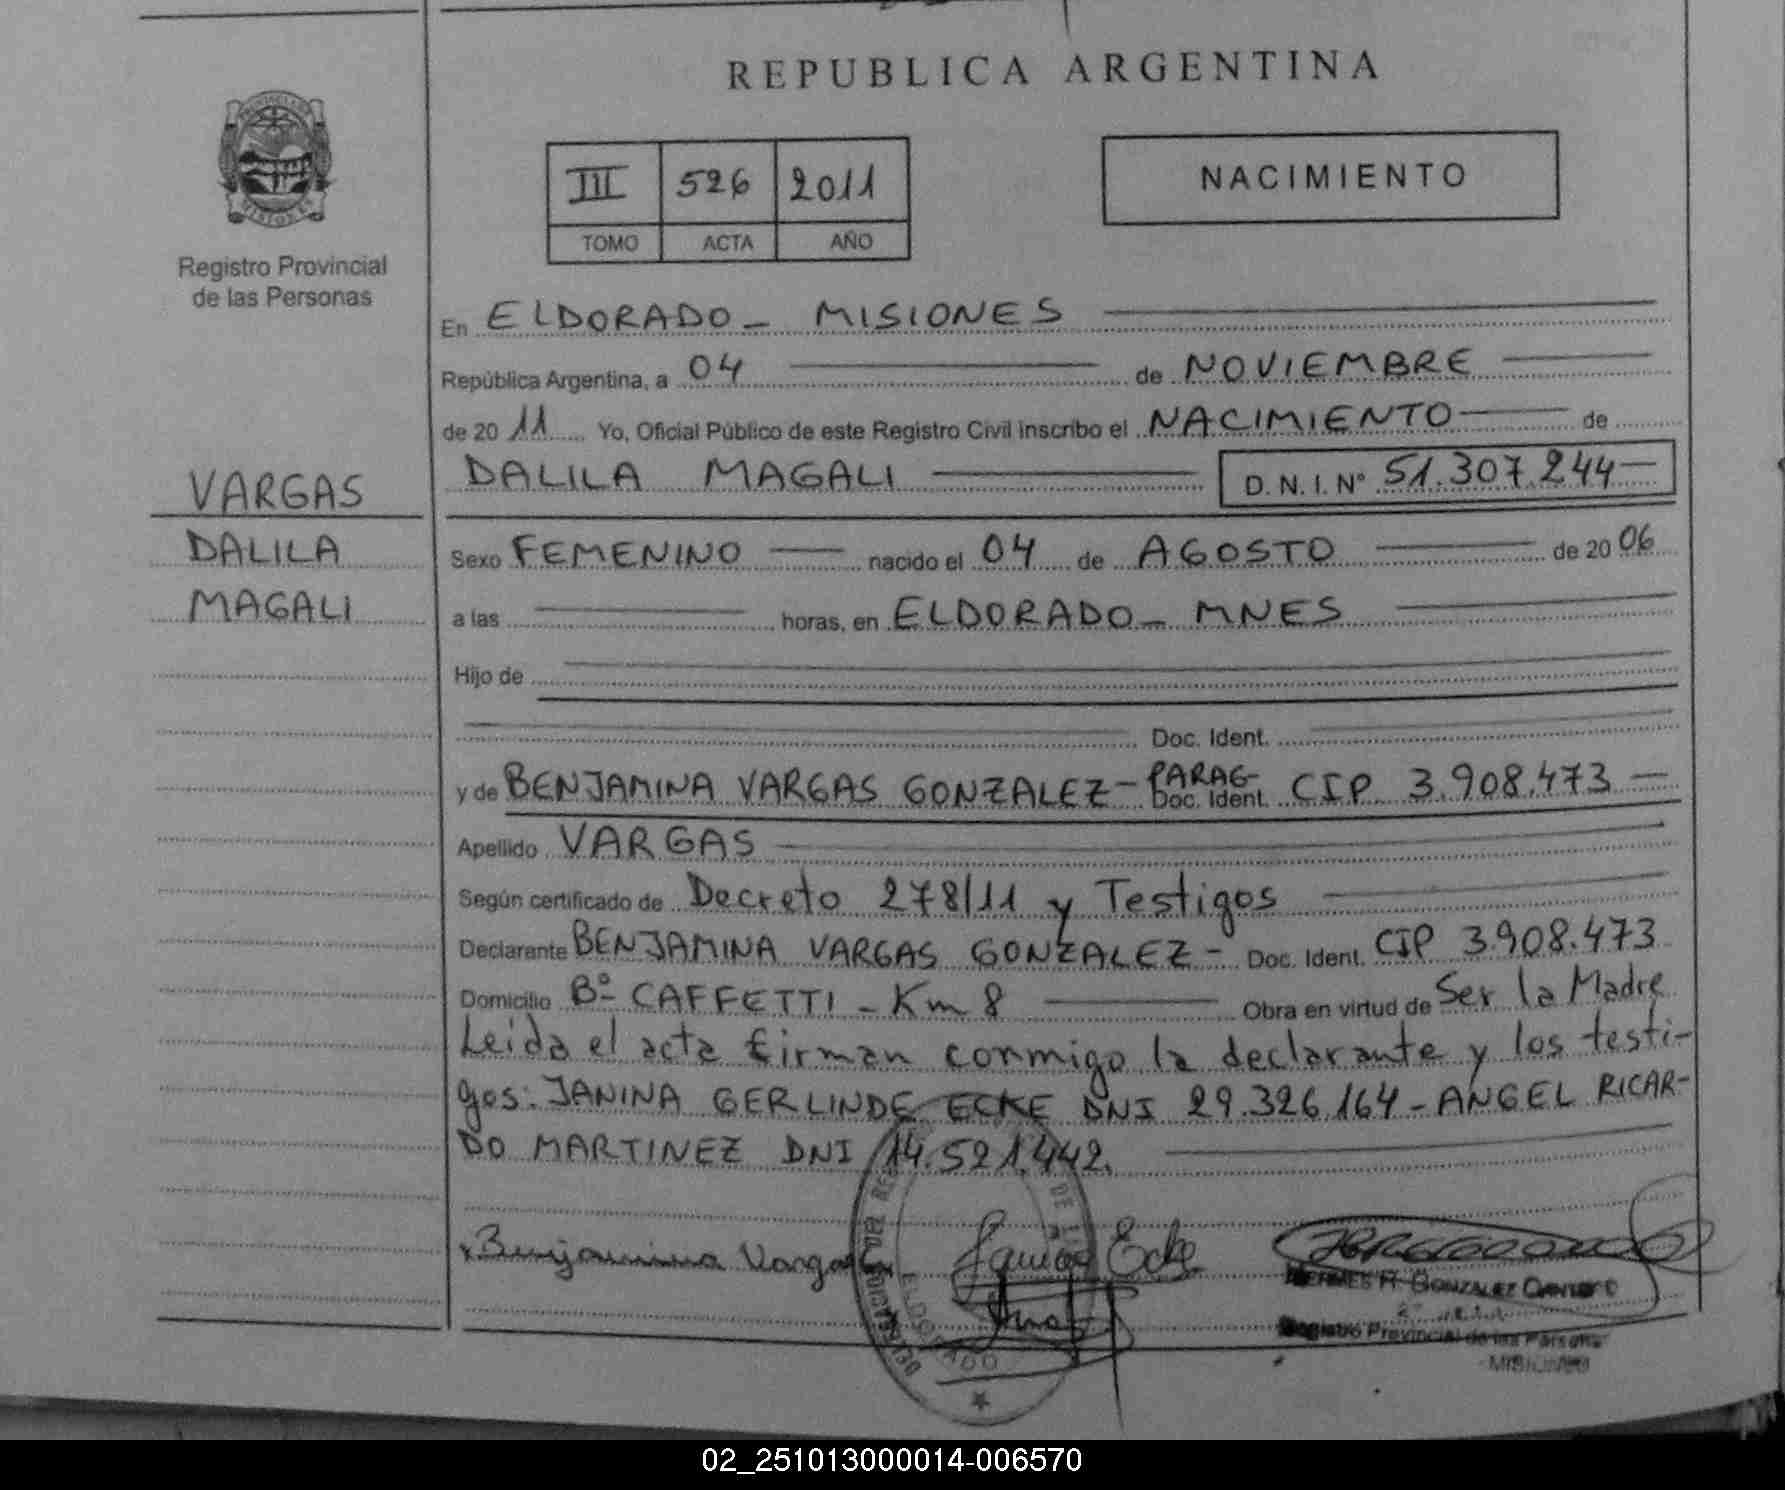 REPUBLICA ARGENTINA
III 526 2011
TOMO ACTA AÑO
NACIMIENTO
PROVINCIA DE
MISIONES
Registro Provincial
de las Personas
VARGAS
DALILA
MAGALI
En ELDORADO - MISIONES
República Argentina, a 04 de NOVIEMBRE
de 20 11 Yo, Oficial Público de este Registro Civil inscribo el NACIMIENTO de
DALILA MAGALI D. N. I. Nº 51.307.244
Sexo FEMENINO nacido el 04 de AGOSTO de 20 06
a las horas, en ELDORADO - MNES
Hijo de
Doc. Ident.
y de BENJAMINA VARGAS GONZALEZ - PARAG- Doc. Ident. CIP 3.908.473
Apellido VARGAS
Según certificado de Decreto 278/11 y Testigos
Declarante BENJAMINA VARGAS GONZALEZ - Doc. Ident. CIP 3.908.473
Domicilio Bº CAFFETTI - Km 8 Obra en virtud de Ser la Madre
Leida el acta firman conmigo la declarante y los testi-
gos: JANINA GERLINDE ECKE DNI 29.326.164 - ANGEL RICAR-
DO MARTINEZ DNI 14.521.442.
Benjamina Vargas
Janina Ecke
HERMES R. GONZALEZ
Registro Provincial de las Personas
MISIONES
ELDORADO
02_251013000014-006570